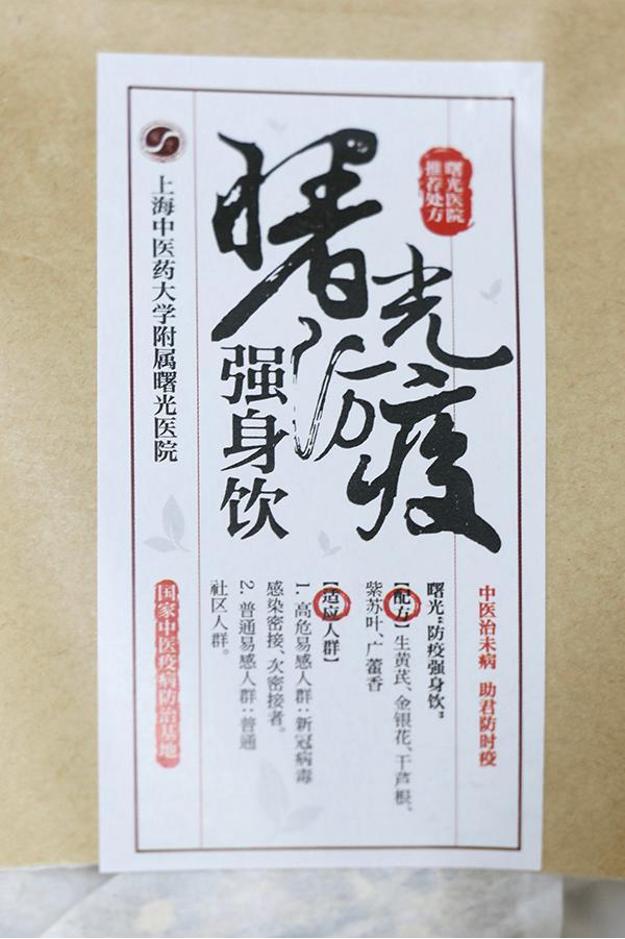 曙光医院
推荐处方
曙光防疫
强身饮
上海中医药大学附属曙光医院
国家中医疫病防治基地
中医治未病 助君防时疫
曙光“防疫强身饮”
【配方】生黄芪、金银花、干芦根、
紫苏叶、广藿香
【适应人群】
1. 高危易感人群:新冠病毒
感染密接、次密接者。
2. 普通易感人群:普通
社区人群。